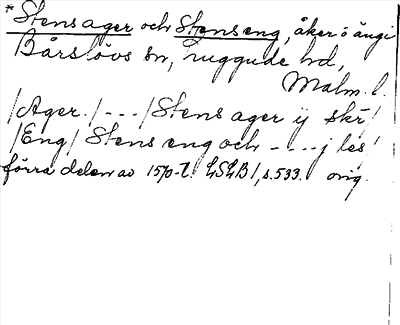 * Stens ager och Stens eng, åker o äng i
Bårslövs sn, Luggude hd,
Malm. l.
/Ager./ - - - / Stens ager ij skr /
/Eng/ Stens eng och - - - - j les /
förra delen av 1570-t. LSLB1, s. 533. orig.